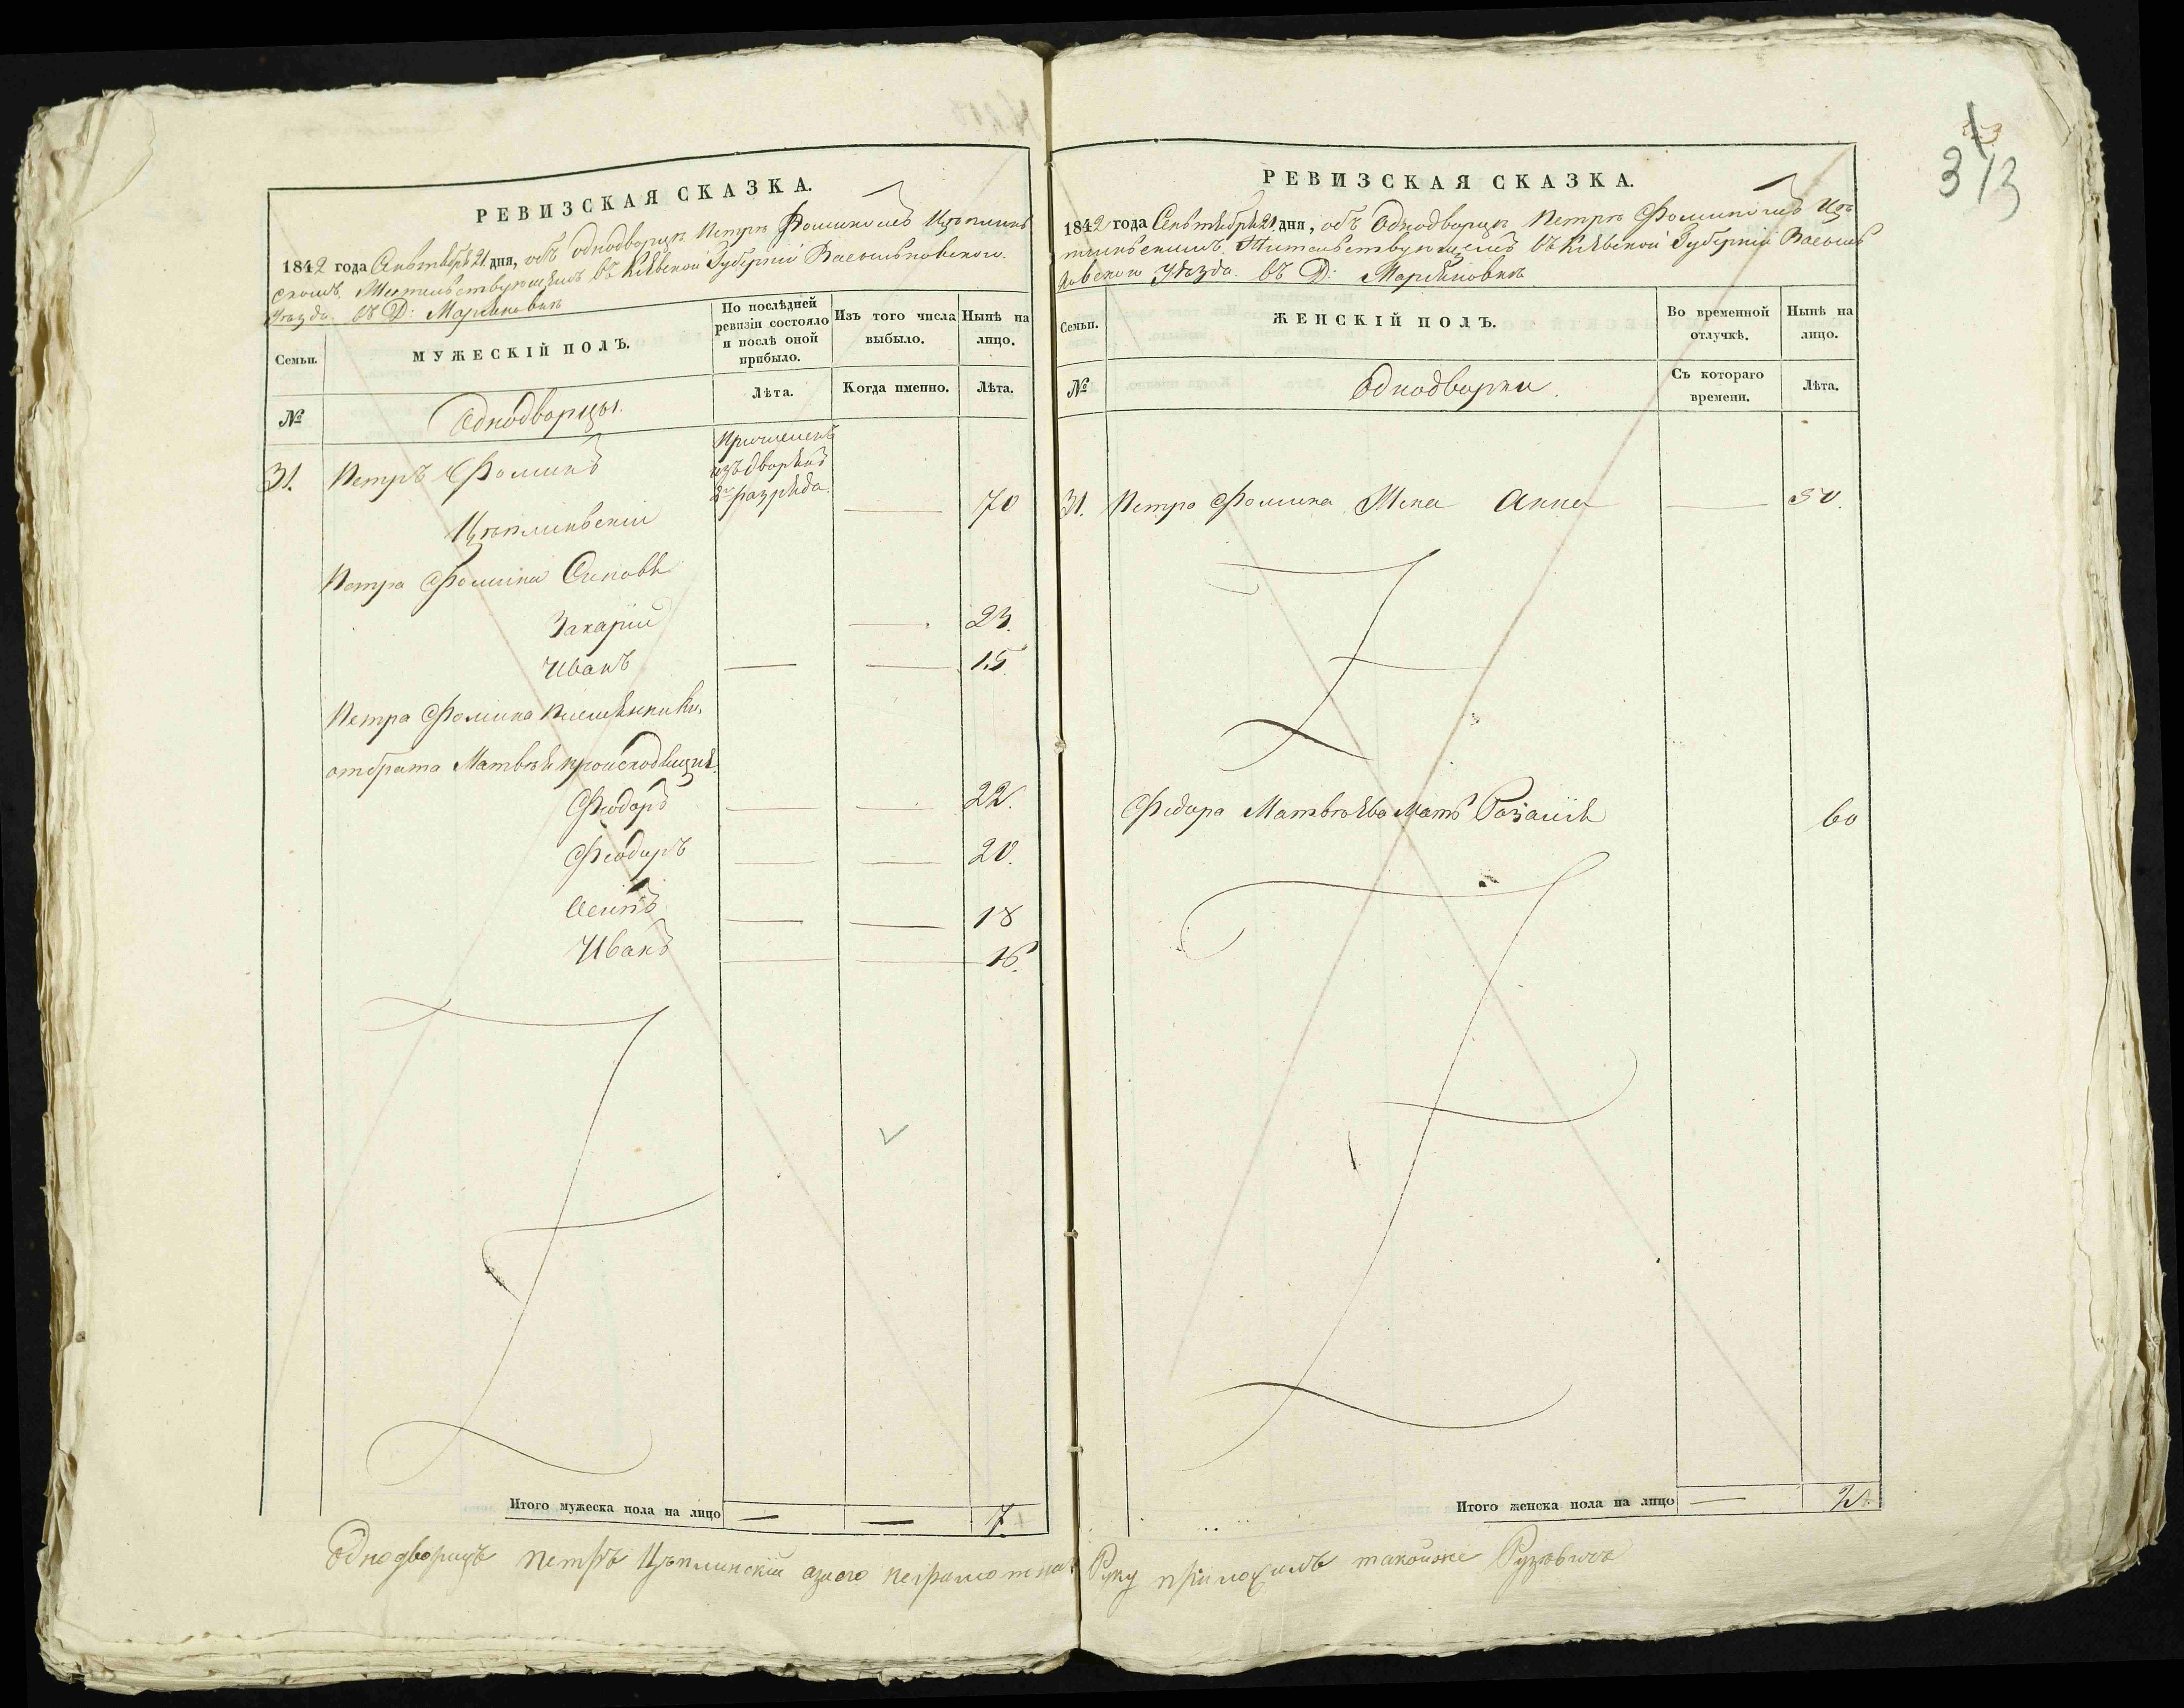 РЕВИЗСКАЯ СКАЗКА.
1842 года Сентября 21 дня, объ однодворцѣ Петрѣ Фоминомъ Цѣплинь
скомъ, Жительствующемъ въ Кіевской Губерніи Васильковскаго
Уѣзда въ Д: Марьяновкѣ
Семьи.
МУЖЕСКІЙ ПОЛЪ.
По послѣдней
ревизіи состояло
и послѣ оной
прибыло.
Изъ того числа
выбыло.
Нынѣ на
лицо.
№
Однодворцы.
Лѣта.
Когда именно.
Лѣта.
31. Петръ Фоминъ
Причисленъ
изъ дворянъ
2го разряда.
Цѣплинскій — 70
Петра Фомина Синовья
Захарій — 23.
Иванъ — — 15.
Петра Фомина племянники,
отбрата Матвѣя происходящія.
Феодоръ — — 22.
Феодоръ — — 20.
Осипъ — — 18
Иванъ — — 16.
Итого мужеска пола на лицо — — 7.
Однодворецъ петръ Цѣплинскій азаего неграмотна
313
РЕВИЗСКАЯ СКАЗКА.
1842 года Сентября 21 дня, объ Однодворцѣ Петрѣ Фоминомъ Цѣп
линьскимъ, Жительствующемъ въ Кіевской Губерніи Василь
ковского Уѣзда въ Д: Марьяновкѣ
Семьи.
ЖЕНСКІЙ ПОЛЪ.
Во временной
отлучкѣ.
Нынѣ на
лицо.
№
Однодворки.
Съ котораго
времени.
Лѣта.
31. Петра Фомина Жена Анна — 50.
Федора Матвѣева Мать Розалія 60
Итого женска пола на лицо — 2.
Руку приложилъ такойже